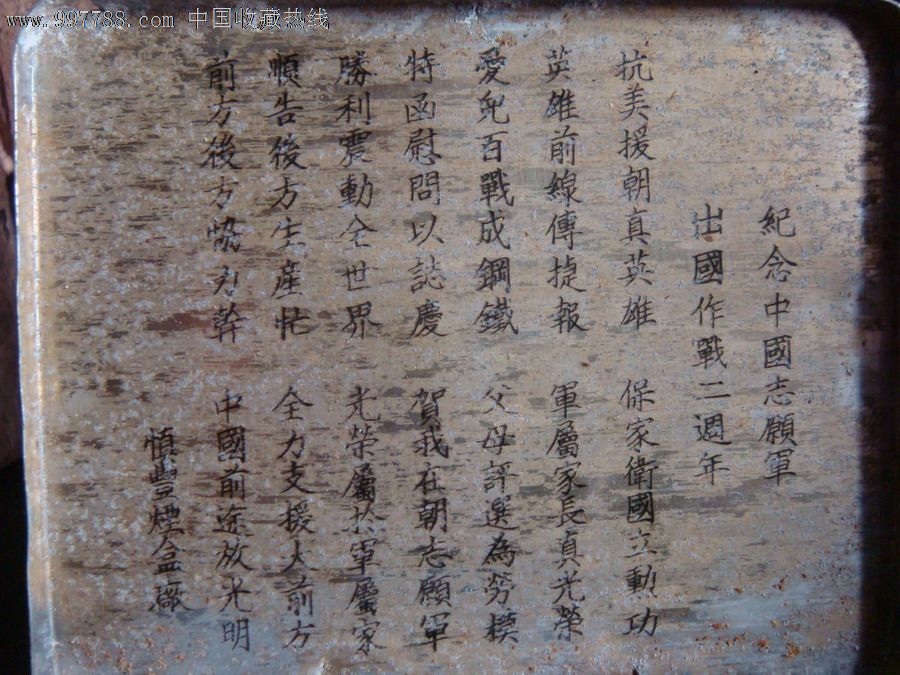 www.997788.com 中国收藏热线
紀念中國志願軍
出國作戰二週年
抗美援朝真英雄 保家衛國立勳功
英雄前線傳捷報 軍屬家長真光榮
愛兒百戰成鋼鐵 父母評選為勞模
特函慰問以誌慶 賀我在朝志願軍
勝利震動全世界 光榮屬於軍屬家
順告後方生產忙 全力支援大前方
前方後方協力幹 中國前途放光明
慎豐煙盒廠